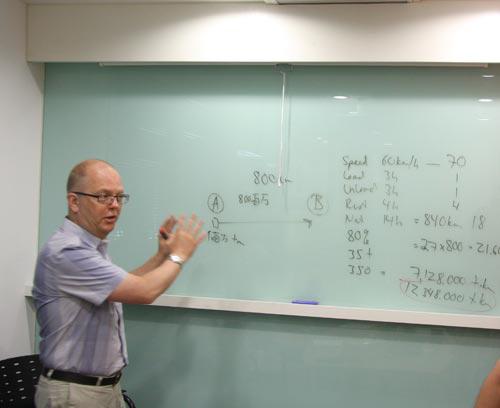 800km
A 800 B
Speed 60km/h — 70
Load 3h 1
Unload 3h 1
Rest 4h 4
Net 14h = 840km 18
80% = 27x800 = 21.60
35t
350 = 7,128.000 tkm
12 348.000 tk